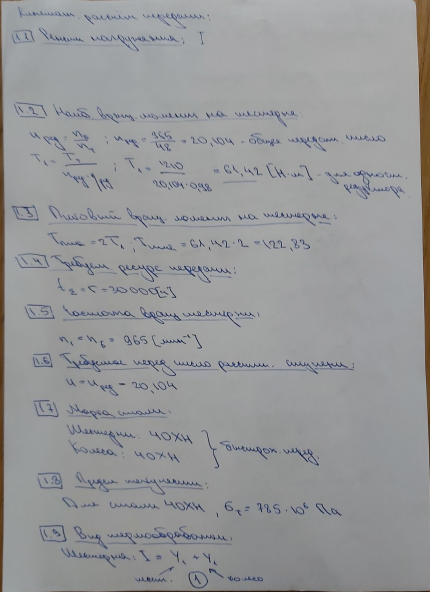 Кинемат. рассчёт передачи:
1.1 Режим нагружения: I
1.2 Наиб. вращ. момент на шестерне
u ред = nб/nт ; u ред = 965/48 = 20,104 - общее передат. число
T₁ = T₂/(u ред · η ред) ; T₁ = 1210/(20,104·0,98) = 61,42 [Н·м] - для одност. редуктора
1.3 Пиковый вращ. момент на шестерне:
Tmax = 2T₁ ; Tmax = 61,42·2 = 122,83
1.4 Требуем. ресурс передачи:
tΣ = τ = 30000[ч]
1.5 Частота вращ. шестерни:
n₁ = nб = 965 [мин⁻¹]
1.6 Требуемое перед. число ступени:
u = u ред = 20,104
1.7 Марка стали:
Шестерни: 40ХН
Колеса: 40ХН } быстрох. перед.
1.8 Предел текучести:
Для стали 40ХН, бт = 785·10⁶ Па
1.9 Вид термообработки:
Шестерня: I = У₁ + У₁
шест. 1 колесо